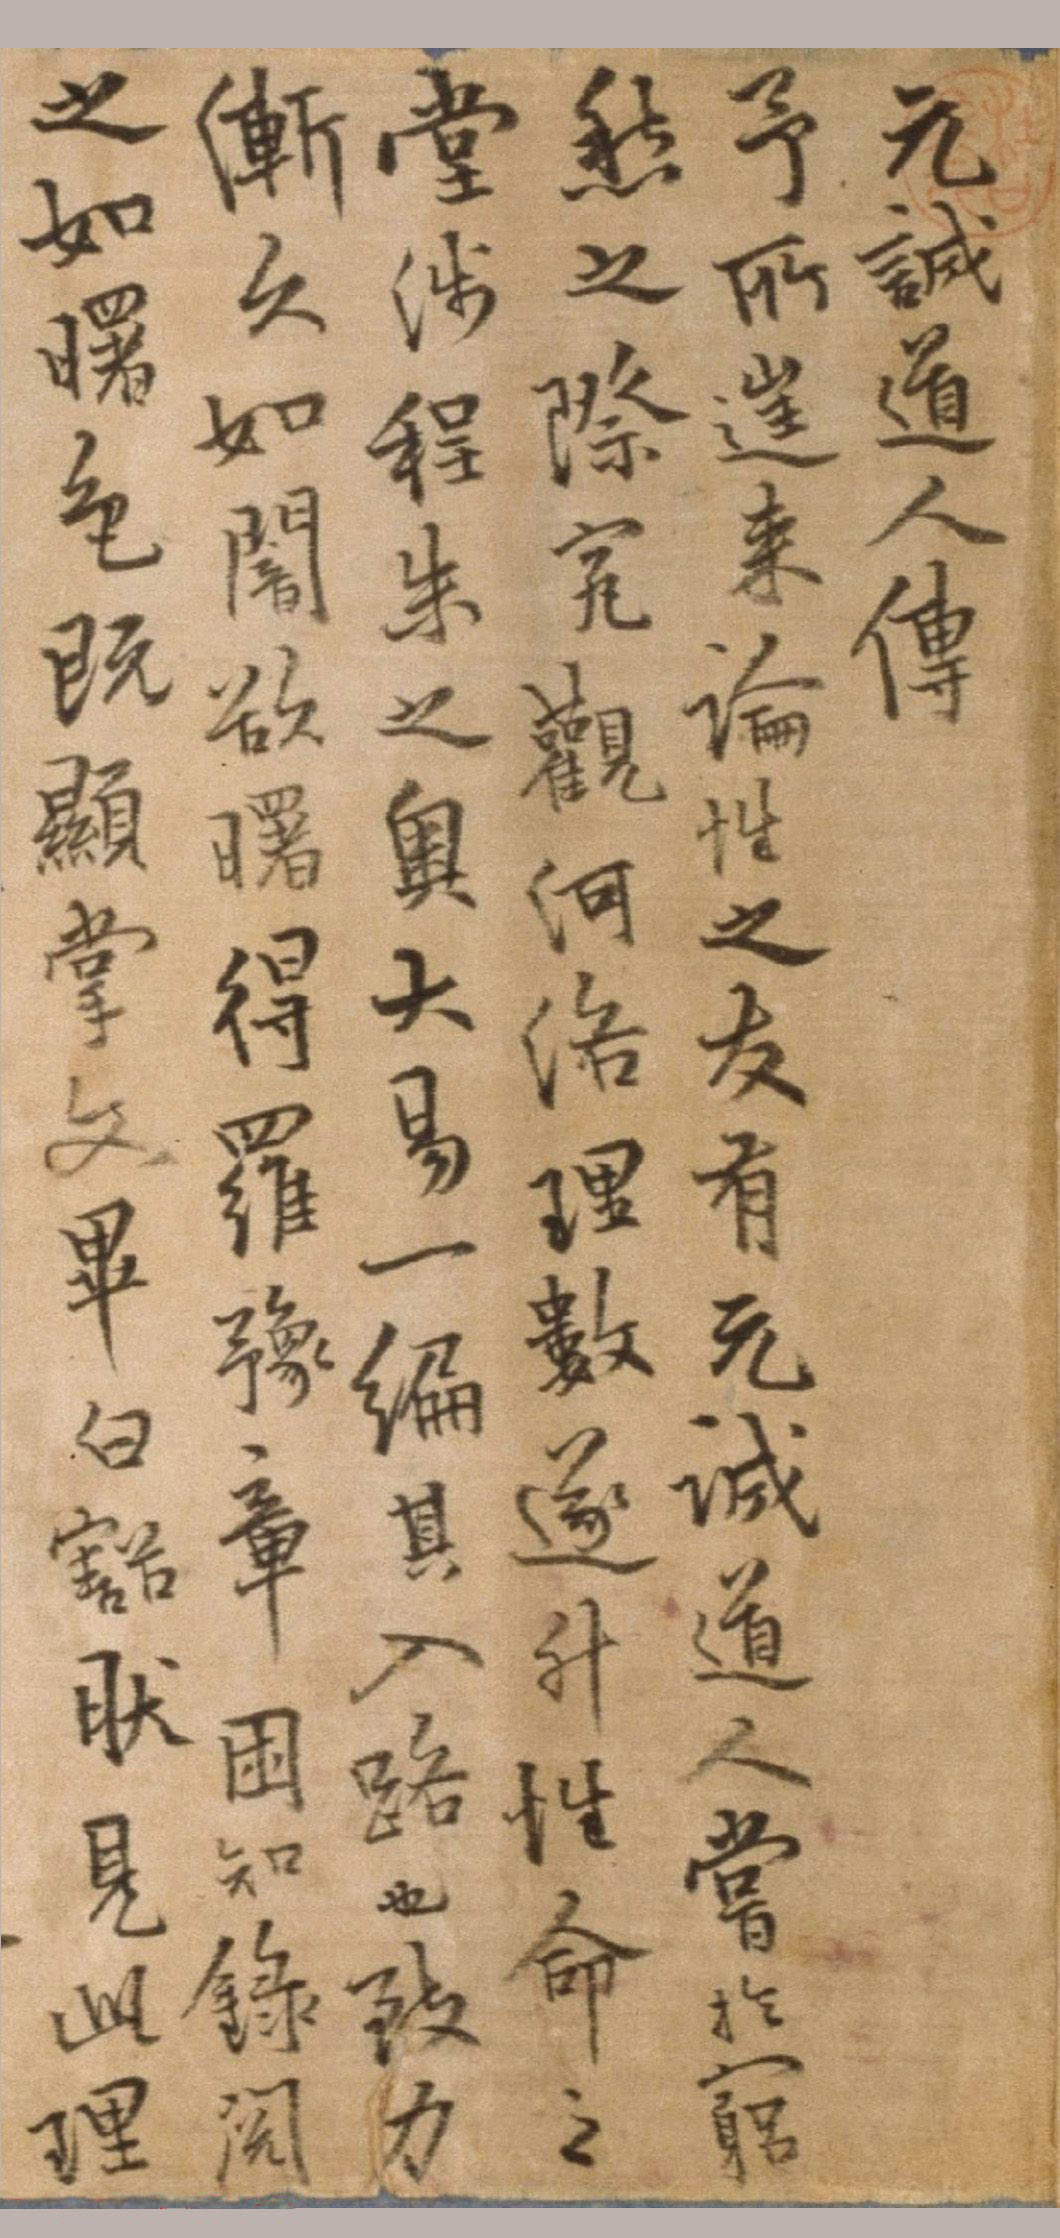 元誠道人傳
予所往来論性之友有元誠道人嘗於窮
愁之際究觀河洛理數遂升性命之
堂涉程朱之奥大易一編其入路也致力
漸久如闇欲曙得羅豫章困知錄閱
之如曙色既顯掌文畢白豁肰見此理